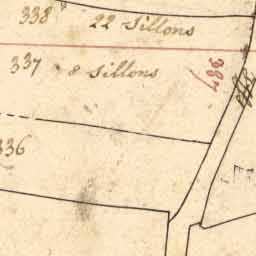 338 22 Sillons
337 8 Sillons
387
336